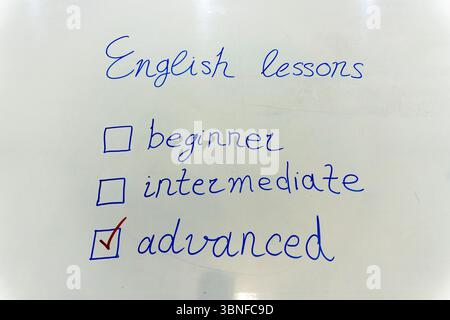 English lessons
beginner
intermediate
advanced
alamy
Image ID: 3BNFC9D
www.alamy.com